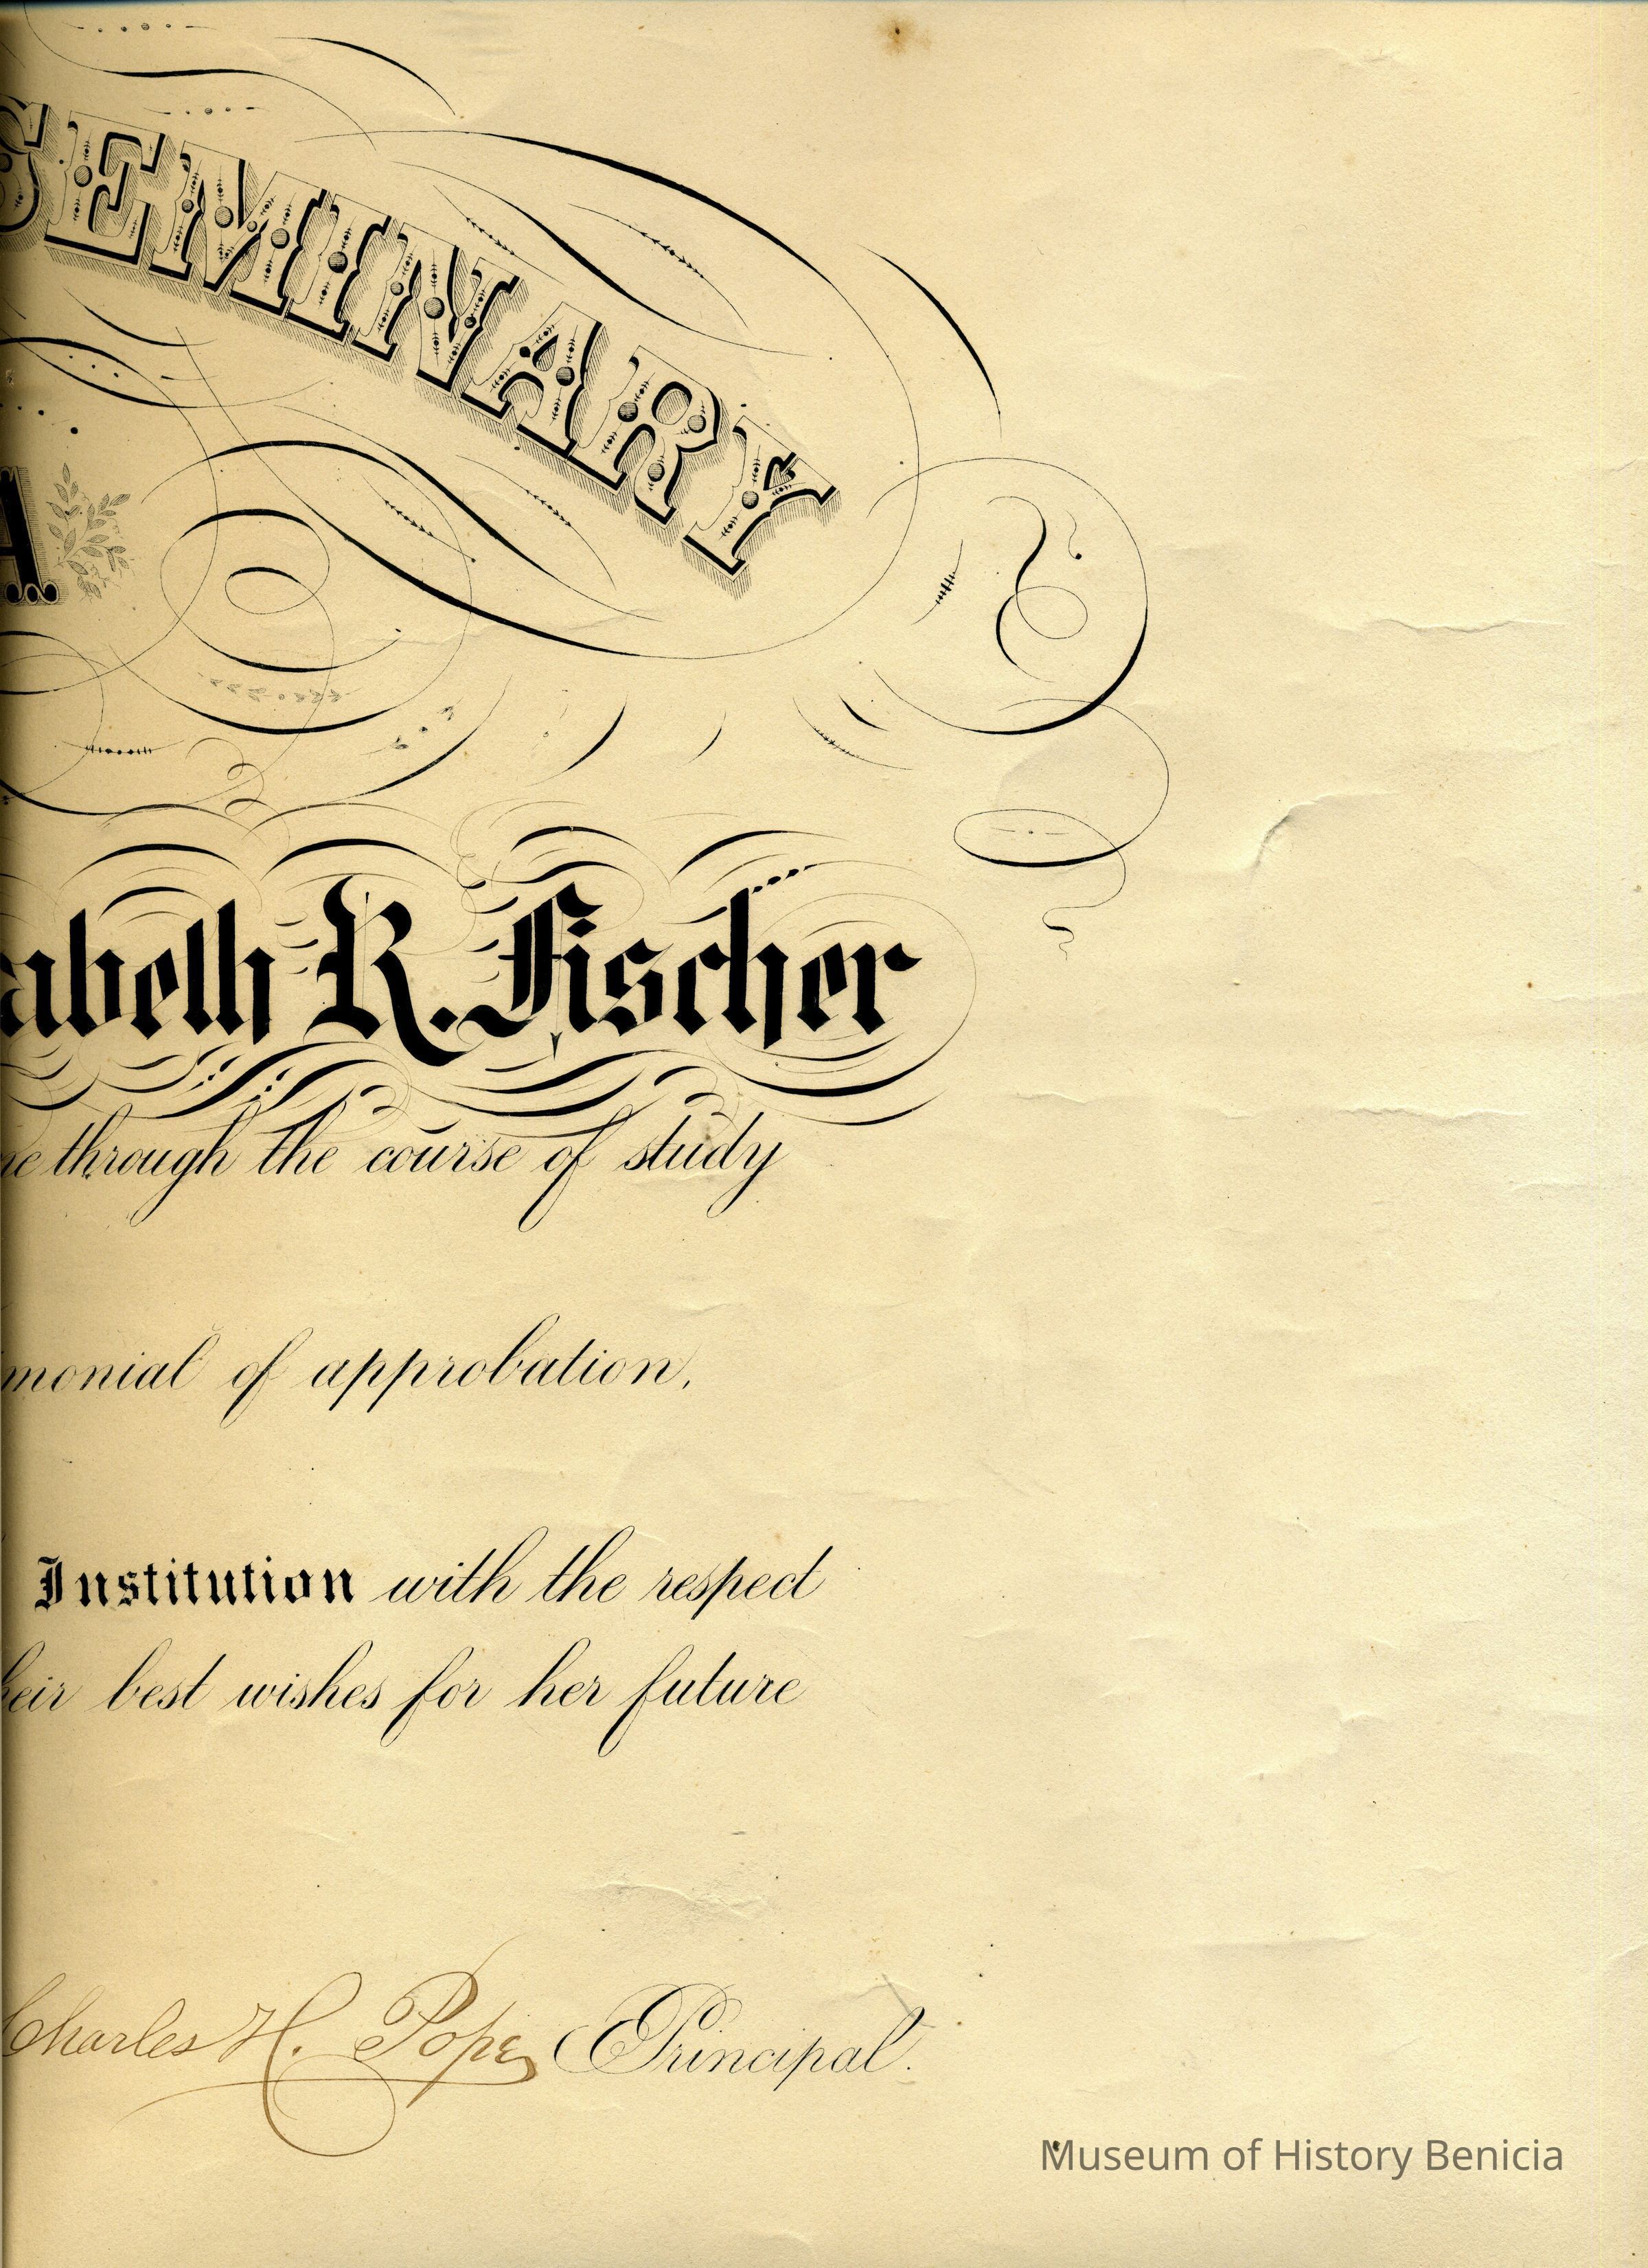 SEMINARY
A
abeth R. Fischer
ne through the course of study
monial of approbation,
Institution with the respect
heir best wishes for her future
Charles H. Pope Principal.
Museum of History Benicia